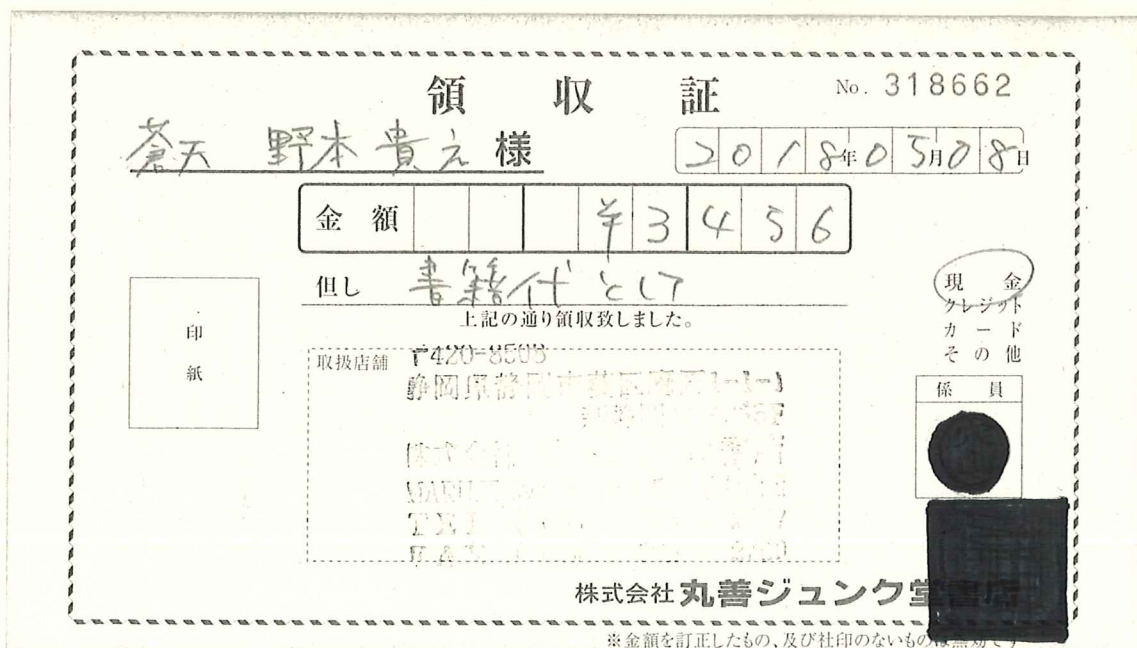 領収証
No. 318662
蒼天 野本貴之 様
2018年05月08日
金額 ¥3456
但し 書籍代として
上記の通り領収致しました。
現金
クレジット
カード
その他
印
紙
取扱店舗
〒420-8508
係員
株式会社 丸善ジュンク堂書店
※金額を訂正したもの、及び社印のないものは無効です